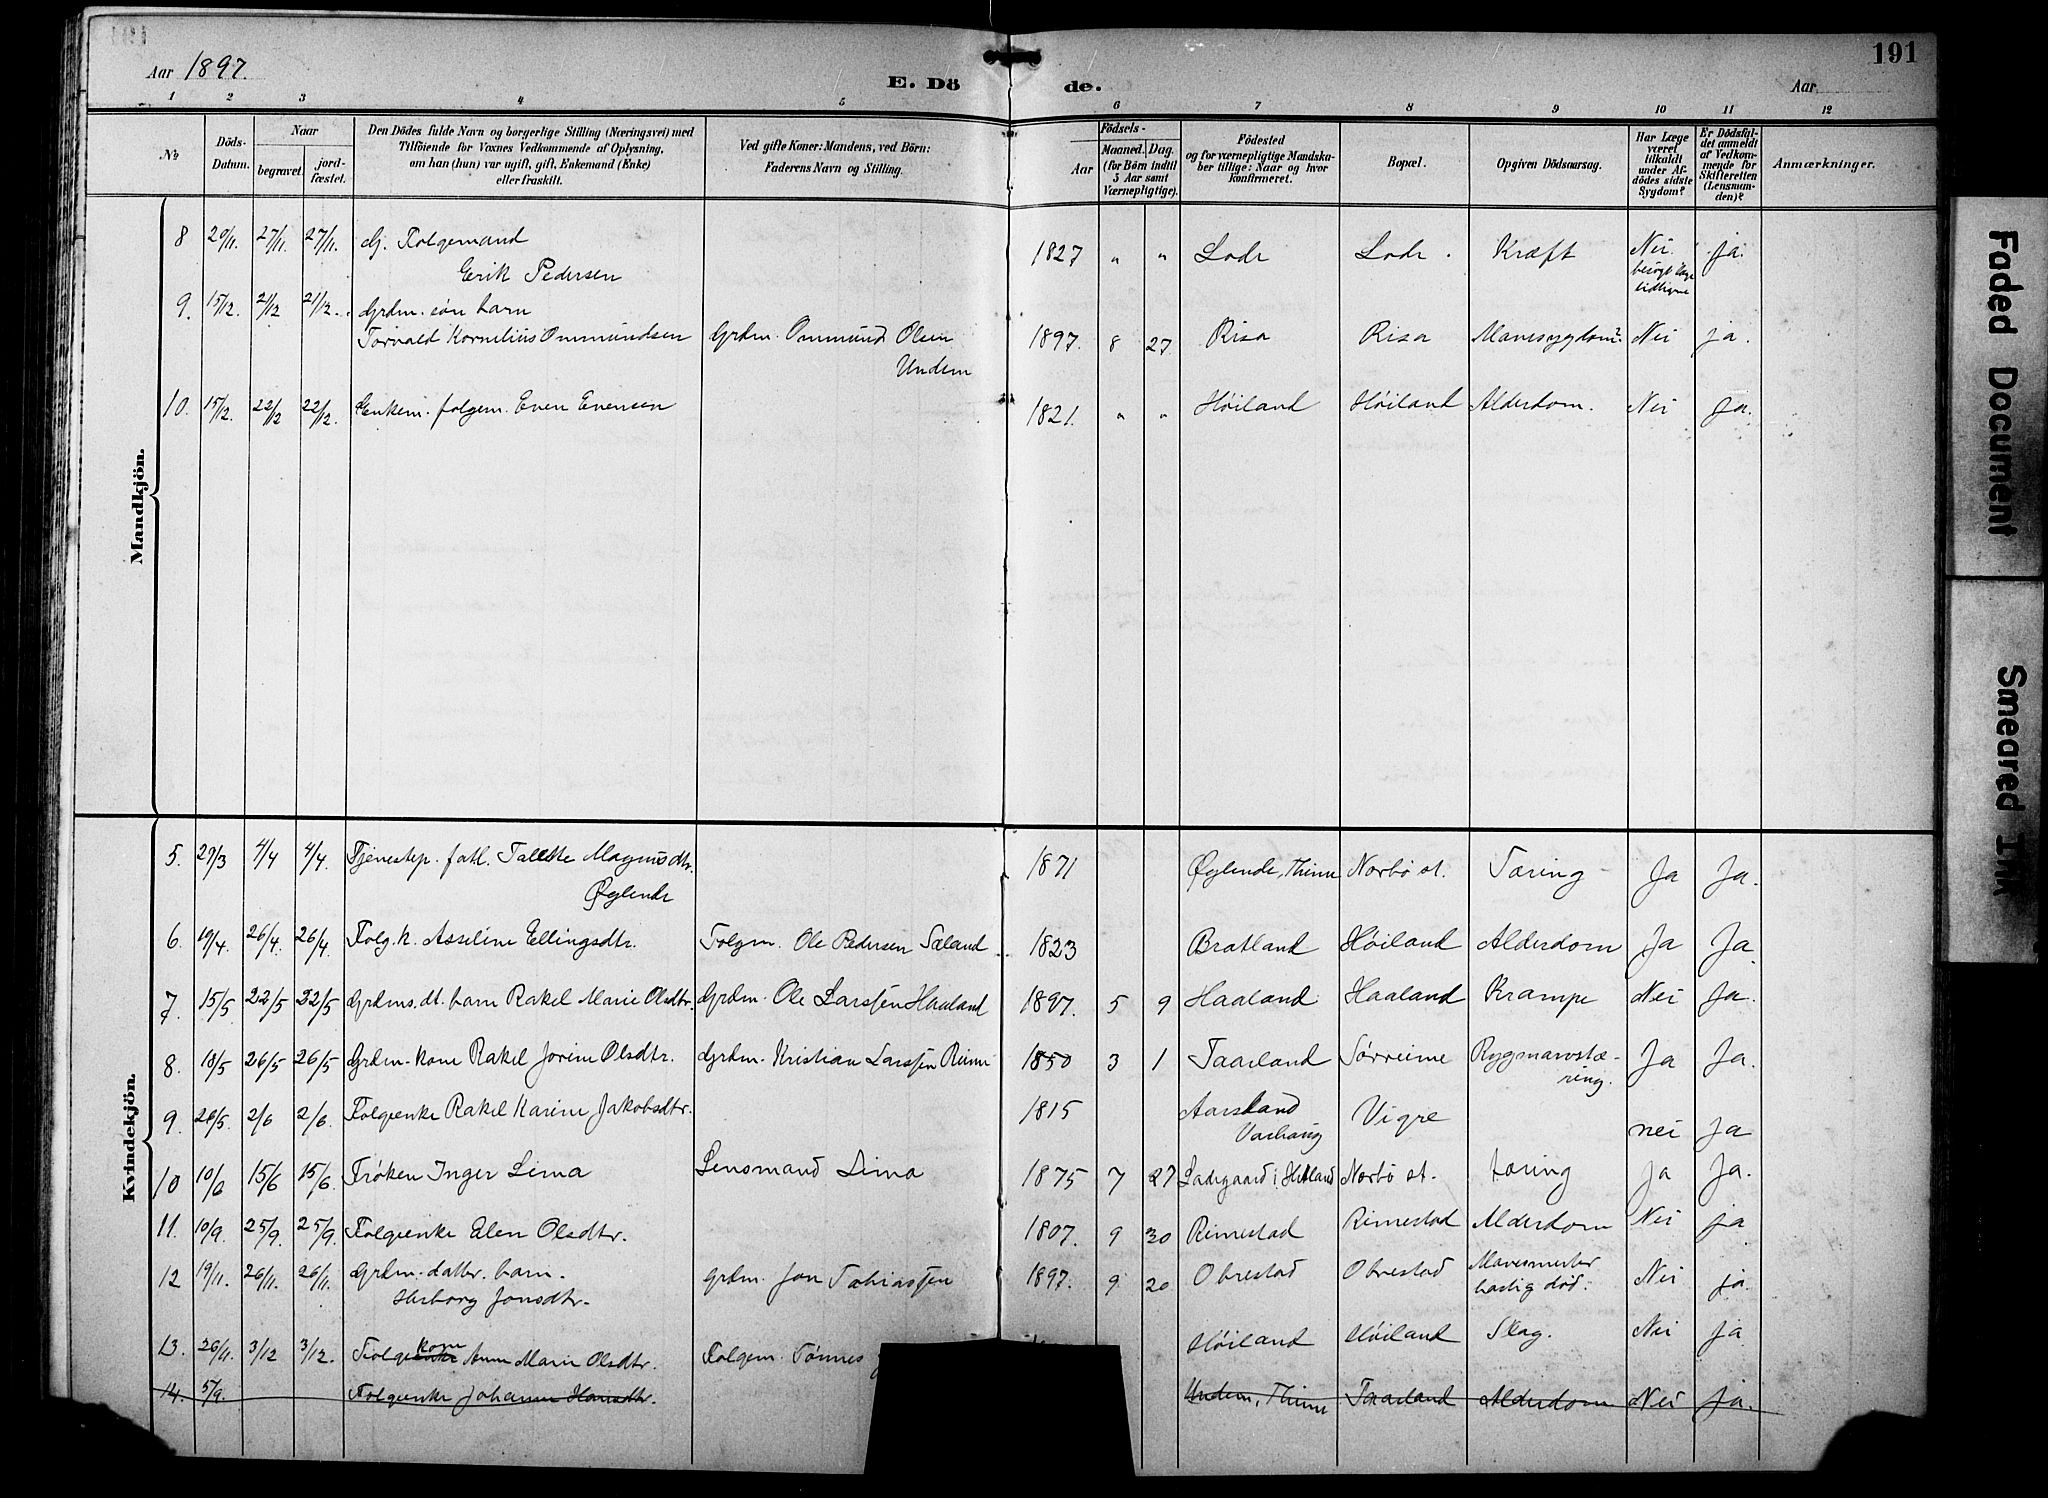 Aar 1897.
E. Dö de.
Aar
191
1 2 3 4 5 6 7 8 9 10 11 12
No
Döds-Datum.
Naar
begravet.
jord-fæstet.
Den Dödes fulde Navn og borgerlige Stilling (Næringsvei) med
Tilföiende for Voxnes Vedkommende af Oplysning,
om han (hun) var ugift, gift, Enkemand (Enke)
eller fraskilt.
Ved gifte Koner: Mandens, ved Börn:
Faderens Navn og Stilling.
Födsels-
Aar
Maaned. Dag.
(for Börn indtil
5 Aar samt
Værnepligtige).
Födested
og for værnepligtige Mandska-
ber tillige: Naar og hvor
konfirmeret.
Bopæl.
Opgiven Dödsaarsag.
Har Læge
været
tilkaldt
under Af-
dödes sidste
Sygdom?
Er Dödsfal-
det anmeldt
af Vedkom-
mende for
Skifteretten
(Lensman-
den)?
Anmærkninger.
Mandkjön.
8 20/11. 27/11. 27/11. Folgemand 1827 " " Lode Lode. Kræft Nei. ja.
Erik Pedersen
9. 15/12. 21/12 21/12. Grdm. søn barn
Torvald Kornelius Ommundsen Grdm. Ommund Olsen 1897. 8 27 Risa Risa Mavesygdom? Nei ja.
Undem
10. 15/12. 22/12 22/12. Enkem. folgem. Even Evensen 1821. " " Høiland Høiland Alderdom. Nei Ja.
Kvindekjön.
5. 29/3 4/4 4/4. Tjenestep. fatl. Talette Magnusdtr. 1871 Øglende, Thime Nærbø st. Tæring Ja Ja.
Øglende
6. 19/4. 26/4. 26/4. Folg.k. Asseline Ellingsdtr. Folgm. Ole Pedersen Sæland 1823 Bratland Høiland Alderdom Ja Ja.
7. 15/5. 22/5 22/5 Grdms. dt. barn Rakel Marie Olsdtr. Grdm. Ole Larssen Haaland 1897. 5 9 Haaland Haaland Krampe Nei Ja.
8. 18/5 26/5 26/5 Grdm. kone Rakel Jorine Olsdtr. Grdm. Kristian Larssen Reime 1850 3 1 Taarland Sørreime Rygmarvstæ- Ja Ja.
ring.
9. 26/5. 2/6 2/6. Folgeenke Rakel Karine Jakobsdtr. 1815 Aarsland Vigre nei Ja
Varhaug
10 10/6 15/6 15/6. Frøken Inger Lima Lensmand Lima 1875 7 27 Ladegaard i Hetland Nærbø st. tæring Ja Ja.
11. 10/9. 25/9. 25/9. Folgeenke Elen Olsdtr. 1807. 9 30 Rimestad Rimestad Alderdom Nei ja
12 19/11. 26/11. 26/11. Grdm. datter. barn. Grdm. Jon Tobiassen 1897. 9 20 Obrestad Obrestad Nei ja.
Herborg Jonsdtr. hastig død.
13. 26/11. 3/12 3/12. Folgekone Ane Marie Olsdtr. Folgem. Tønnes Høiland Høiland Slag. Nei ja
14. 5/9. Folgeenke Johanne Hansdtr. Undem, Thime Taarland Alderdom Nei ja.
Faded Document
Smeared Ink